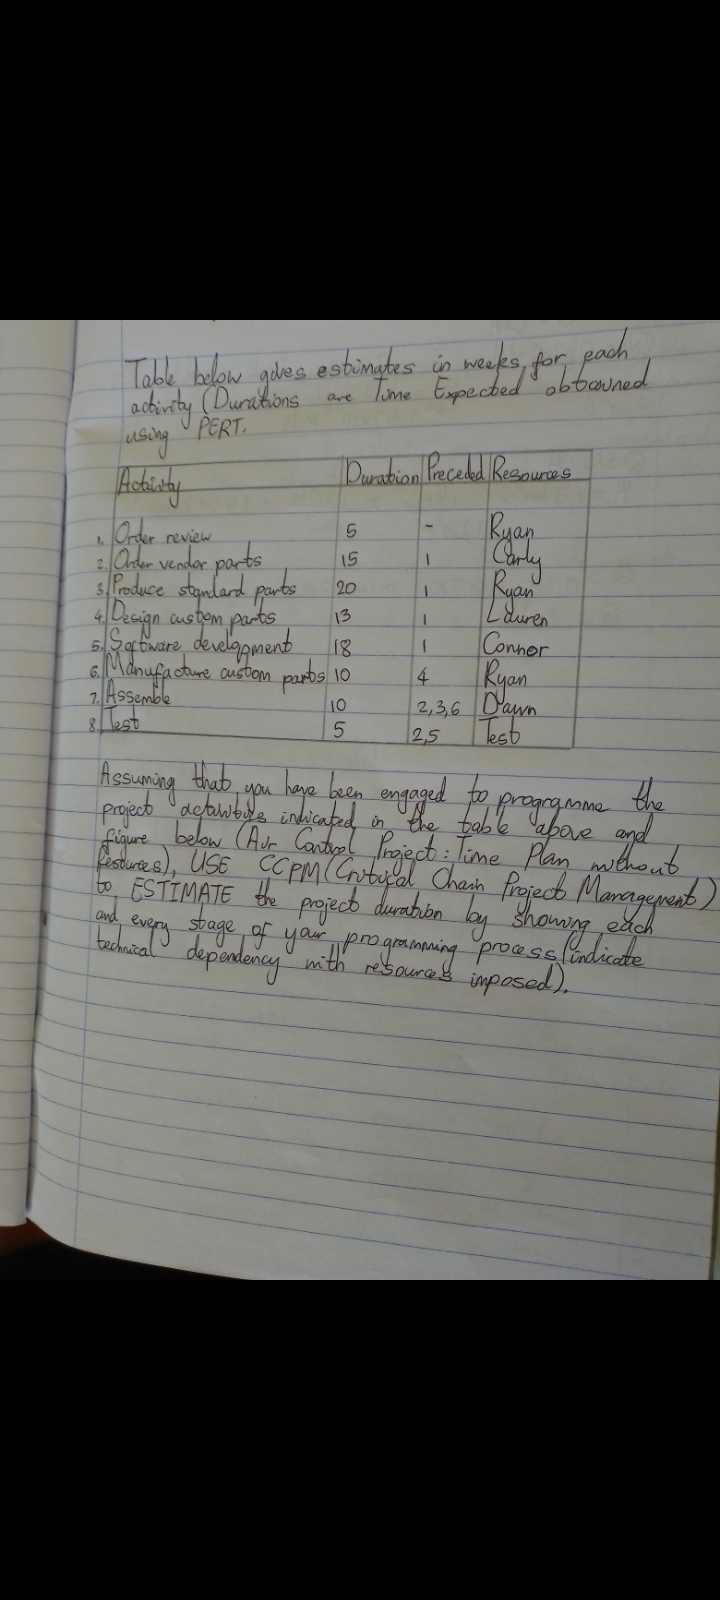 Table below gives estimates in weeks, for each
activity (Durations are Time Expected obtained
using PERT.
Activity Duration Preceded Resources
1. Order review 5 - Ryan
2. Order vendor parts 15 1 Carly
3. Produce standard parts 20 1 Ryan
4. Design custom parts 13 1 Lauren
5. Software development 18 1 Connor
6. Manufacture custom parts 10 4 Ryan
7. Assemble 10 2,3,6 Dawn
8. Test 5 2,5 Test
Assuming that you have been engaged to programme the
project activities indicated in the table above and
figure below (Air Control Project: Time Plan without
Resources), USE CCPM (Critical Chain Project Management)
to ESTIMATE the project duration by showing each
and every stage of your programming process (indicate
technical dependency with resources imposed).